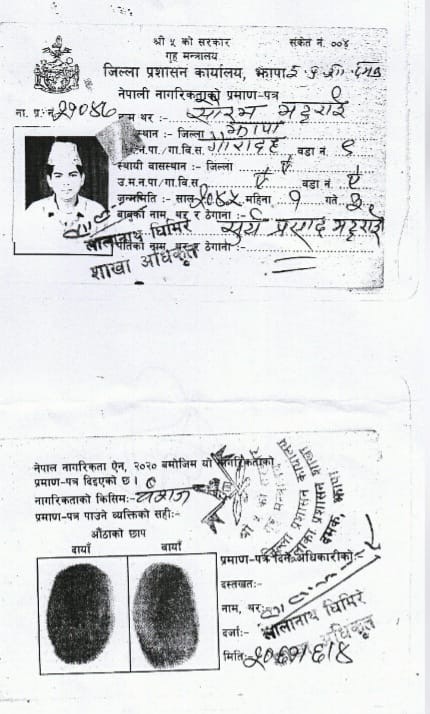 श्री ५ को सरकार संकेत नं. ००४
गृह मन्त्रालय
जिल्ला प्रशासन कार्यालय, झापा
नेपाली नागरिकताको प्रमाण-पत्र
ना. प्र. नं. २१०४७
नाम थर :- सारभ भट्टराई
स्थान :- जिल्ला झापा
न.पा./गा.वि.स. गौरादह वडा नं. ९
स्थायी वासस्थान :- जिल्ला ऐ ऐ
उ.म.न.पा/गा.वि.स. ऐ वडा नं. ऐ
जन्ममिति :- साल २०४५ महिना १ गते
बाबुको नाम, थर र ठेगाना :- सूर्य प्रसाद भट्टराई
पतिको नाम, थर र ठेगाना :-
लालानाथ घिमिरे
शाखा अधिकृत
नेपाल नागरिकता ऐन, २०२० बमोजिम यो नागरिकताको
प्रमाण-पत्र दिइएको छ ।
नागरिकताको किसिम:- वंशज
प्रमाण-पत्र पाउने व्यक्तिको सही:-
औंठाको छाप
दायाँ बायाँ
श्री ५ को सरकार
गृह मन्त्रालय
जिल्ला प्रशासन कार्यालय
इलाका प्रशासन शाखा
दमक, झापा
प्रमाण-पत्र दिने अधिकारीको:-
दस्तखत:-
नाम, थर:-
लालानाथ घिमिरे
दर्जा:- शाखा अधिकृत
मिति:-